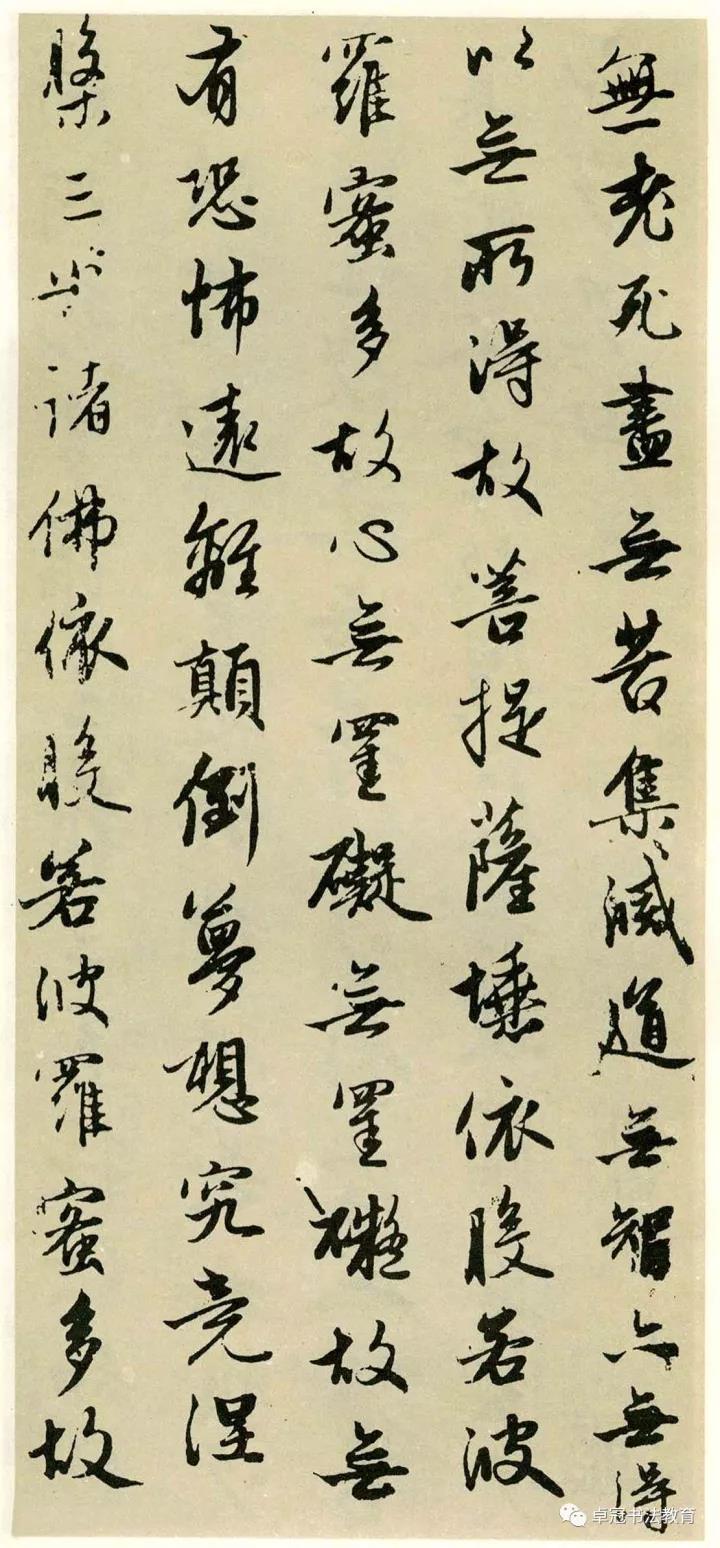 無老死盡無苦集滅道無智亦無得
以無所得故菩提薩埵依般若波
羅蜜多故心無罣礙無罣礙故無
有恐怖遠離顛倒夢想究竟涅
槃三世諸佛依般若波羅蜜多故
卓冠书法教育